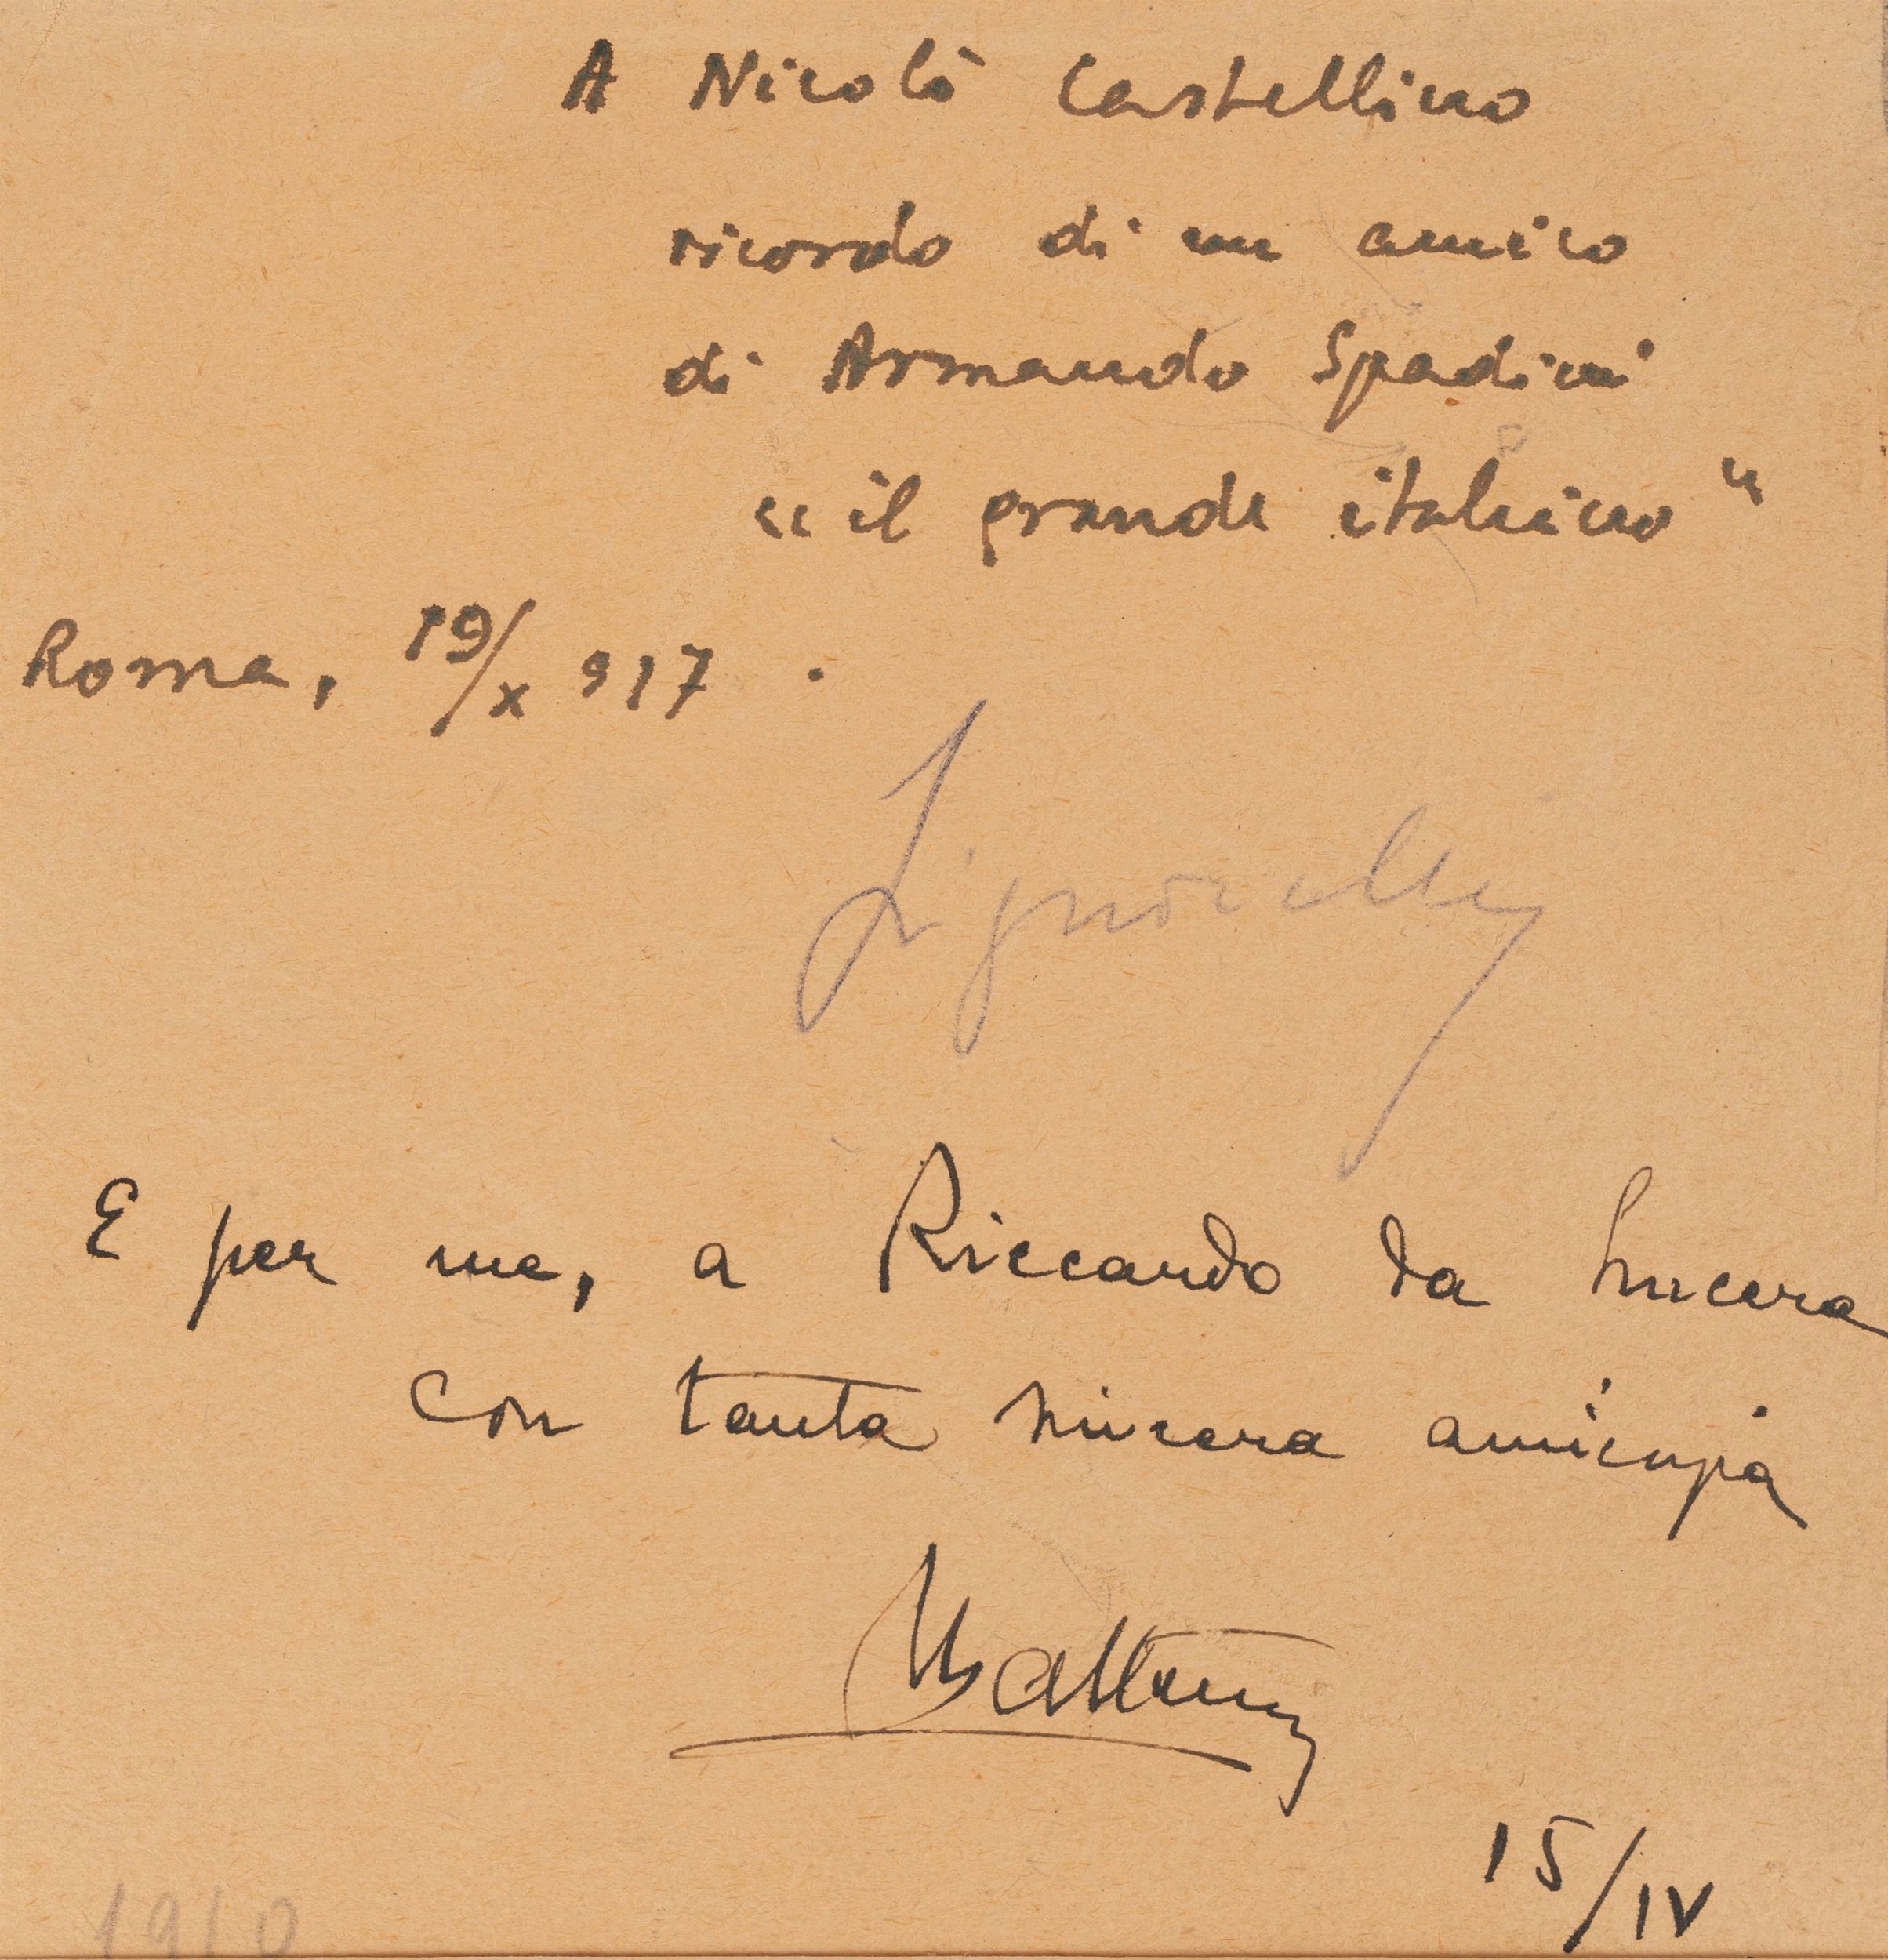 A Nicolò Castellino
ricordo di un amico
di Armando Spadini
"il grande italiano"
Roma, 19/X 917.
Signorelli
E per me, a Riccardo da
con tanta sincera amicizia
15/IV
1910